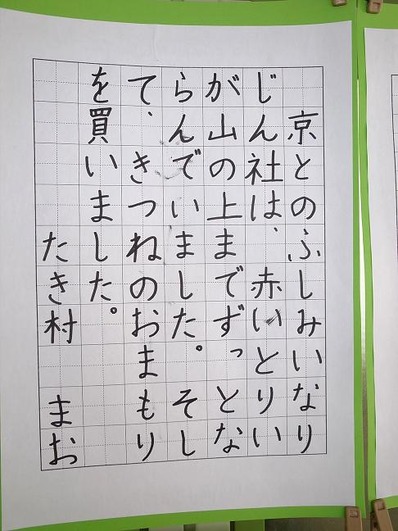 京とのふしみいなり
じん社は、赤いとりい
が山の上までずっとな
らんでいました。そし
て、きつねのおまもり
を買いました。
たき村 まお